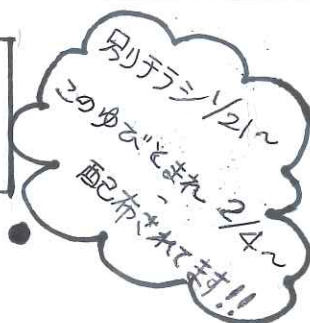 別リチラシ1/21〜
このゆびとまれ 2/4〜
配布されてます!!